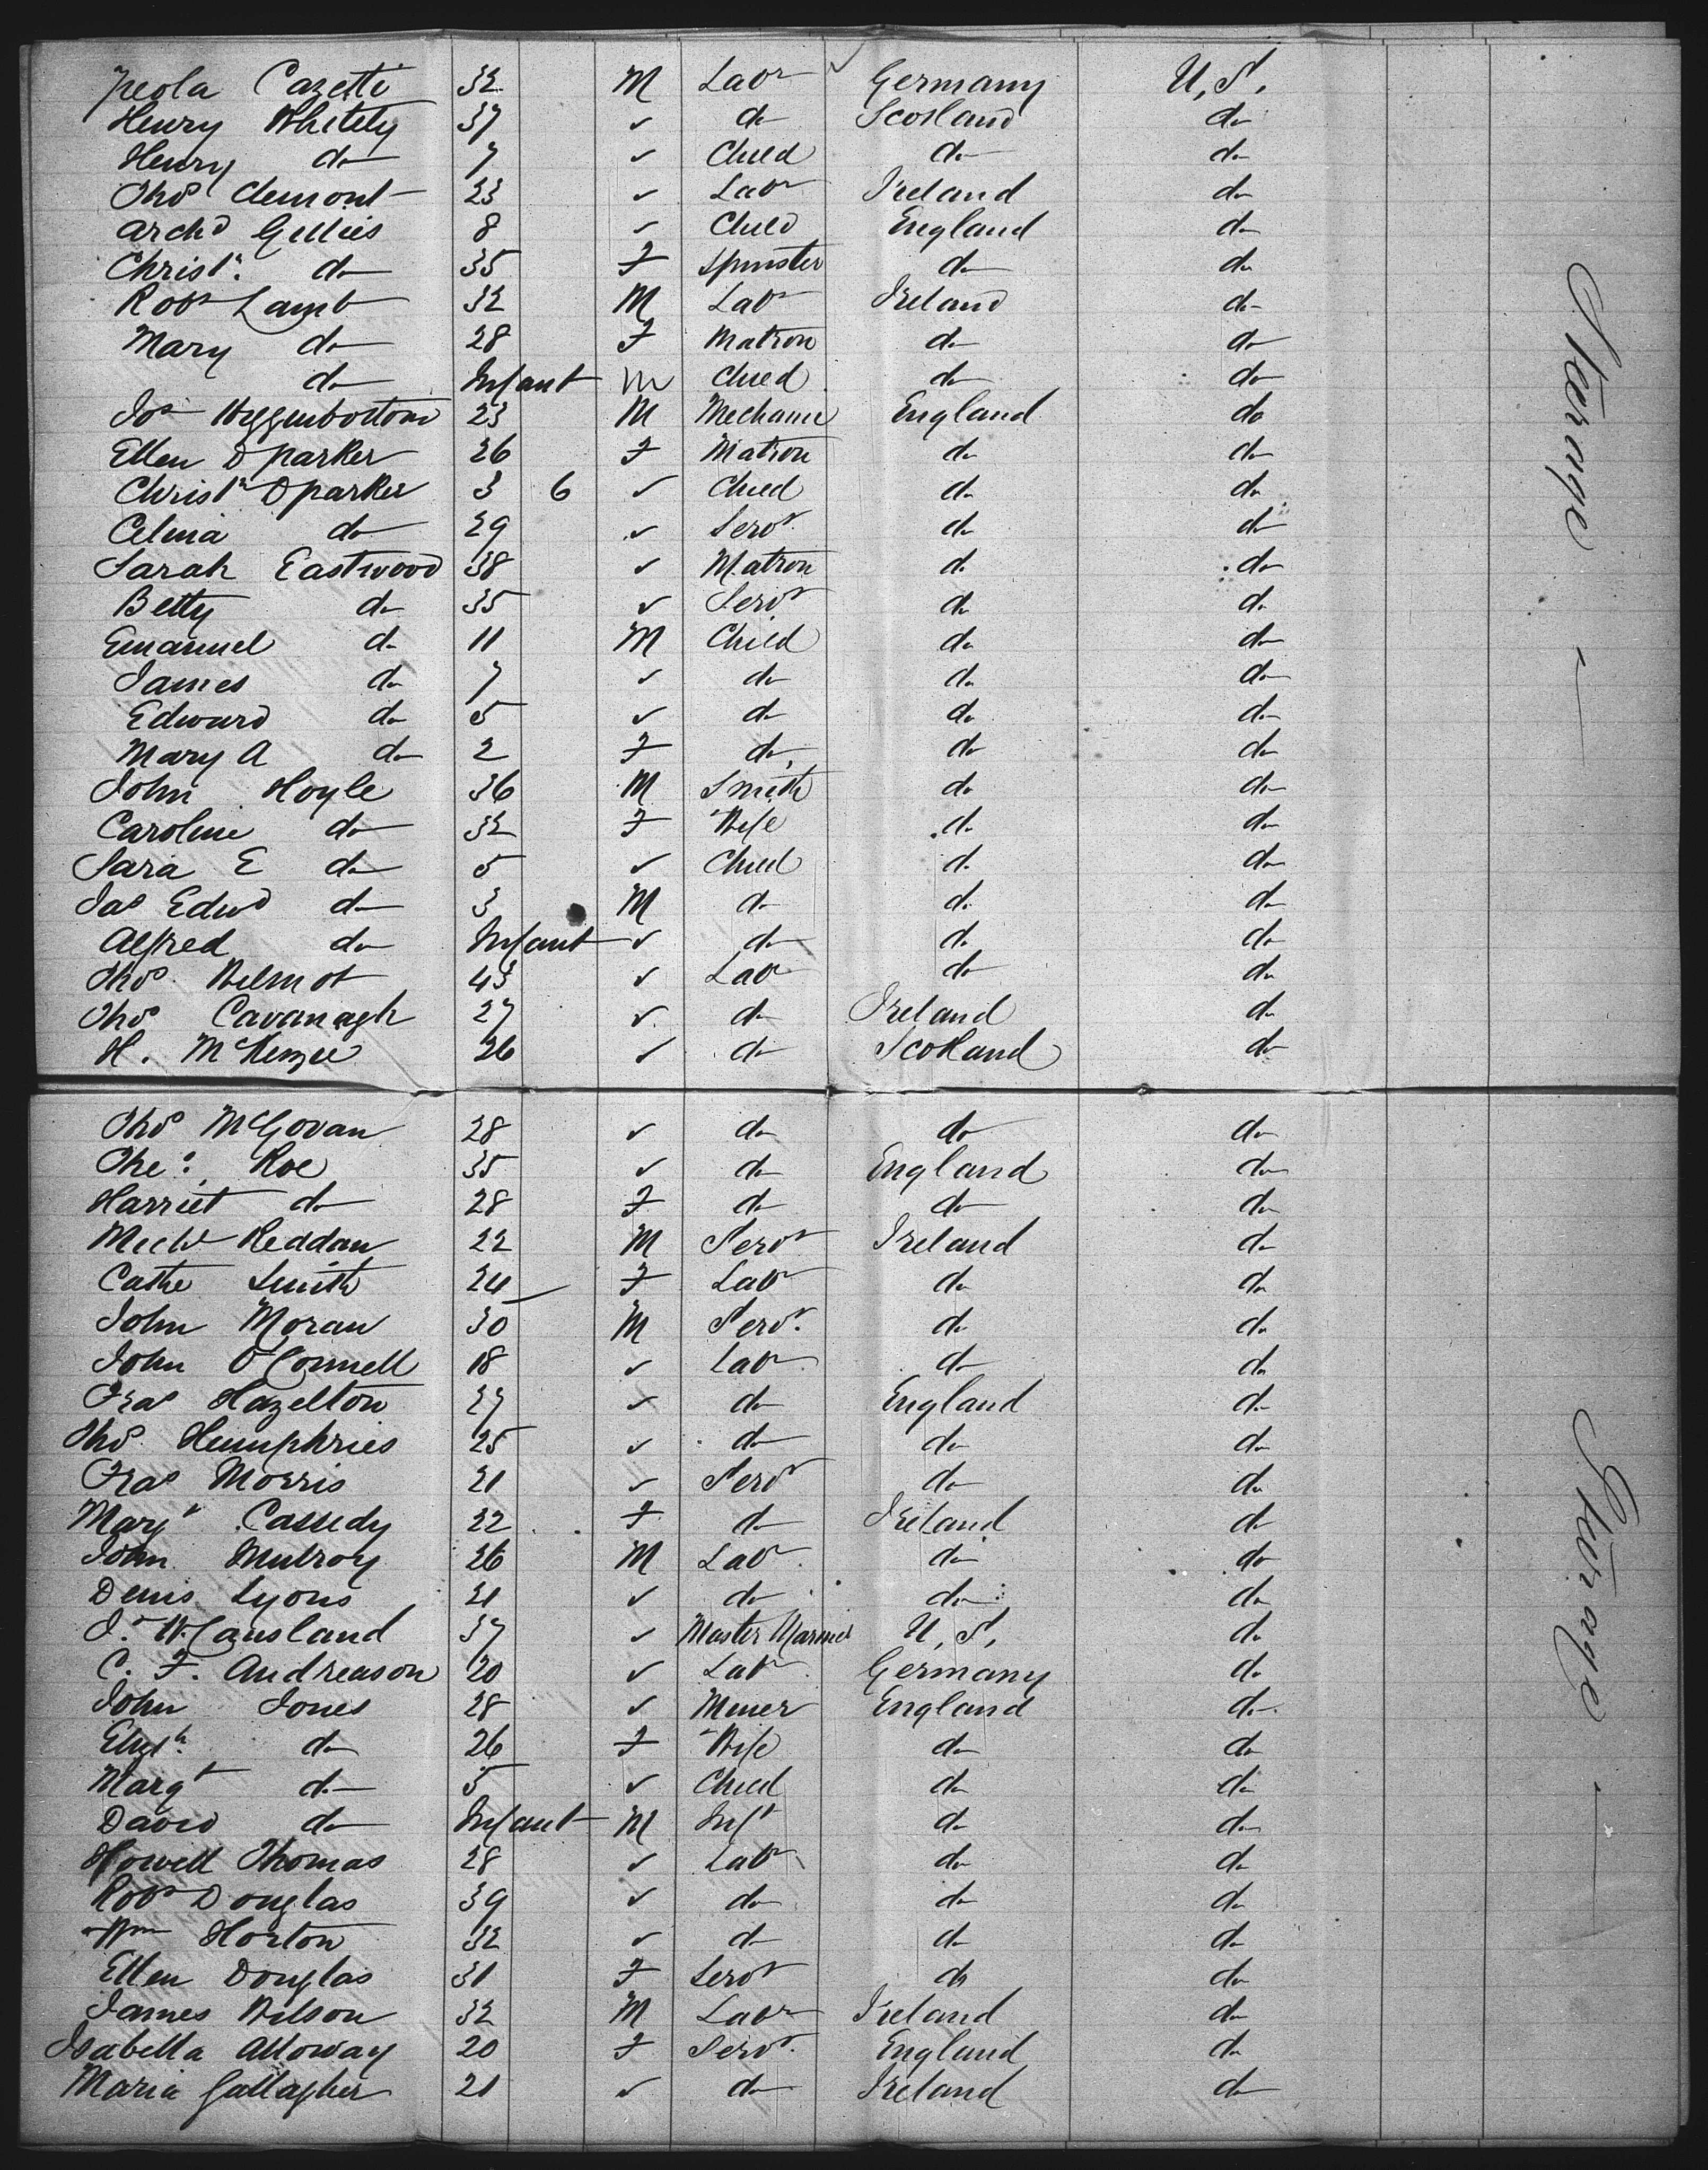 Cazetti 32 M Labr Germany U, S,
Henry Whitely 37 ✓ do Scotland do
Henry do 7 ✓ Child do do
Thos Clemont 23 ✓ Labr Ireland do
Archd Gillies 8 ✓ Child England do
Christn. do 35 F Spinster do do
Robt Lamb 32 M Labr Ireland do
Mary do 28 F Matron do do
do Infant M Child do do
Jos Higginbottom 23 M Mechanic England do
Ellen D Parker 26 F Matron do do
Christn D Parker 3 6 ✓ Child do do
Celina do 29 ✓ Servt. do do
Sarah Eastwood 38 ✓ Matron do do
Betty do 35 ✓ Servt do do
Emanuel do 11 M Child do do
James do 7 ✓ do do do
Edward do 5 ✓ do do do
Mary A do 2 F do do do
John Hoyle 36 M Smith do do
Caroline do 32 F Wife do do
Sara E do 5 ✓ Child do do
Jas Edwd do 3 M do do do
Alfred do Infant ✓ do do do
Thos. Wilmot 43 ✓ Labr do do
Thos Cavanagh 27 ✓ do Ireland do
H. McKenzie 26 ✓ do Scotland do
Thos McGovan 28 ✓ do do do
Roe 35 ✓ do England do
Harriet do 28 F do do do
Michl Reddan 22 M Servt Ireland do
Cathe Smith 24 F Labr do do
John Moran 30 M Servt. do do
John O'Connell 18 ✓ Labr do do
Fras Hazelton 27 ✓ do England do
Thos. Humphries 25 ✓ do do do
Fras Morris 21 ✓ Servt do do
Margt Cassedy 22 F do Ireland do
John Mulroy 26 M Labr. do do
Denis Lyons 21 ✓ do do do
J. McCausland 37 ✓ Master Mariner U, S, do
C. F. Andreason 20 ✓ Labr. Germany do
John Jones 28 ✓ Miner England do
Elizth. do 26 F Wife do do
Margt do 5 ✓ Child do do
David do Infant M Inft do do
Howell Thomas 28 ✓ Labr do do
Robt Douglas 39 ✓ do do do
Wm Horton 32 ✓ do do do
Ellen Douglas 31 F Servt do do
James Wilson 32 M Labr Ireland do
Isabella Alloway 20 F Servt. England do
Maria Gallagher 21 ✓ do Ireland do
Steerage
Steerage